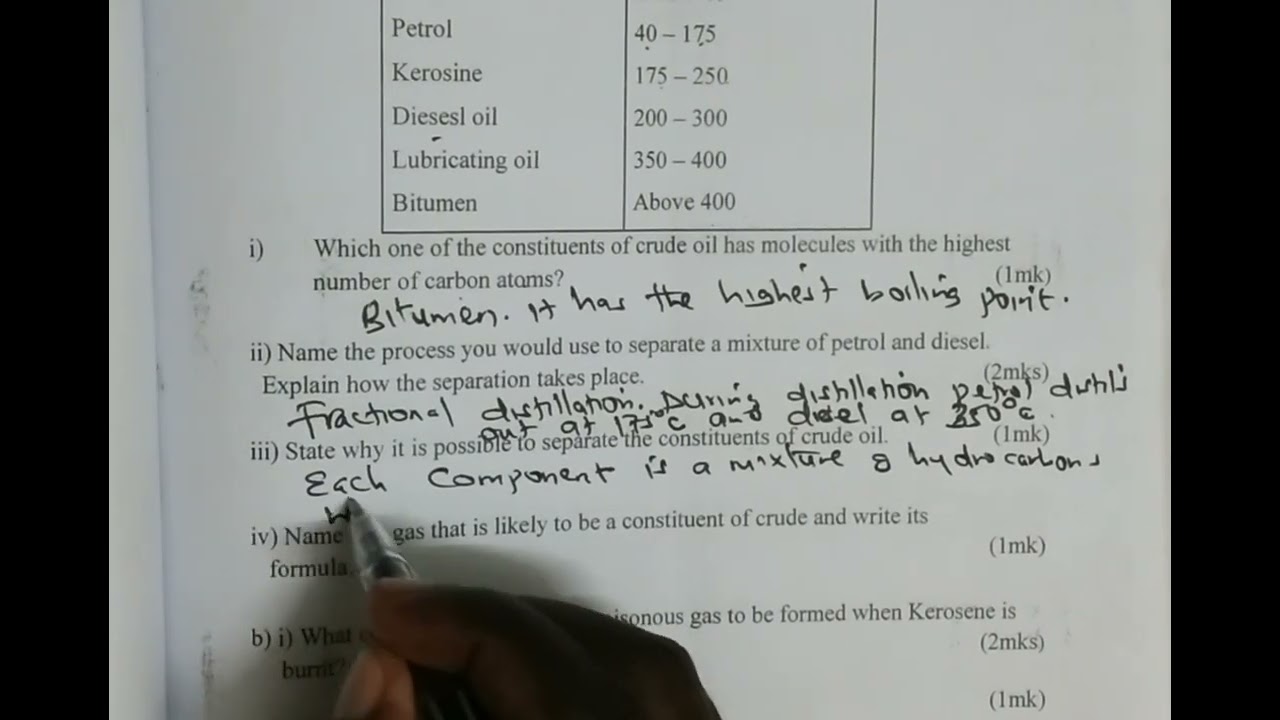 Petrol 40 – 175
Kerosine 175 – 250
Diesesl oil 200 – 300
Lubricating oil 350 – 400
Bitumen Above 400
i) Which one of the constituents of crude oil has molecules with the highest
number of carbon atoms? (1mk)
Bitumen. It has the highest boiling point.
ii) Name the process you would use to separate a mixture of petrol and diesel.
Explain how the separation takes place. (2mks)
Fractional distillation. During distillation petrol distils
out at 175°C and diesel at 250°C.
iii) State why it is possible to separate the constituents of crude oil. (1mk)
Each component is a mixture of hydrocarbons
iv) Name gas that is likely to be a constituent of crude and write its
formula. (1mk)
b) i) What gas to be formed when Kerosene is
burnt? (2mks)
(1mk)